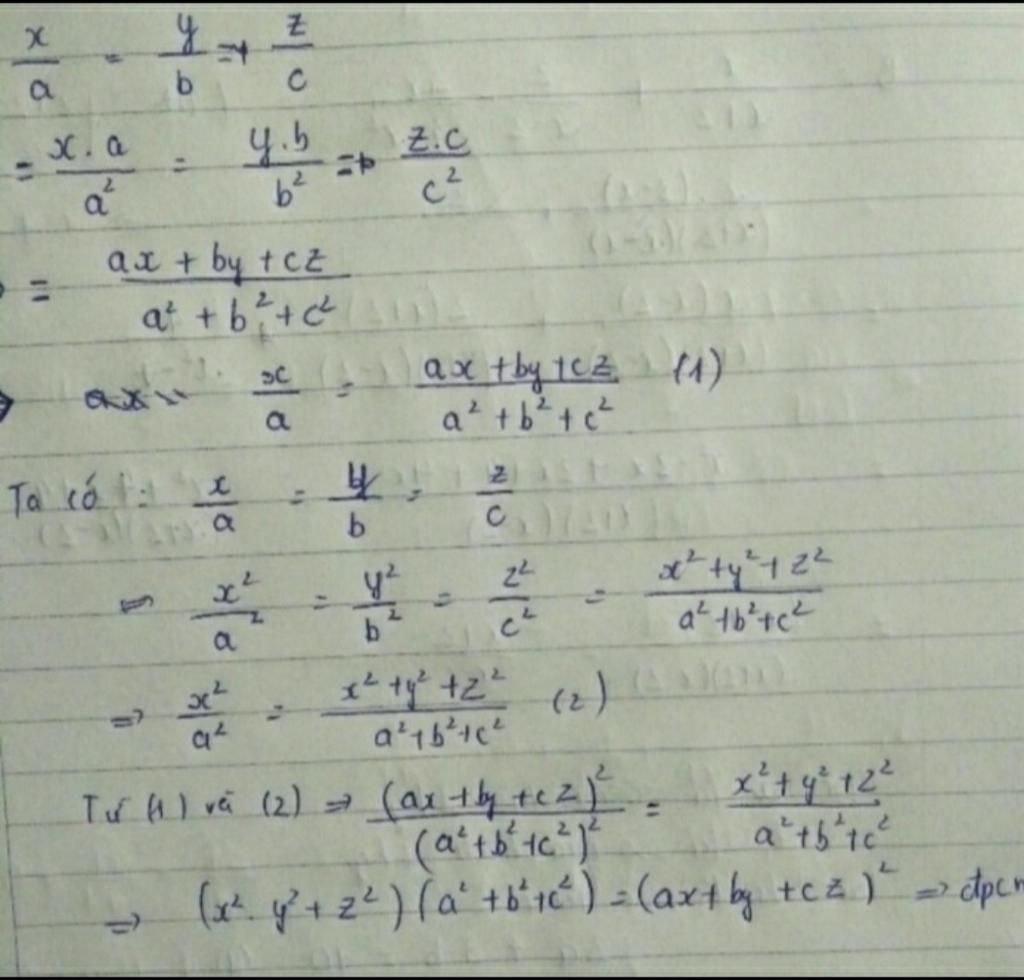 x/a = y/b => z/c
= x.a/a² = y.b/b² => z.c/c²
= ax + by + cz / a² + b² + c²
x/a = ax + by + cz / a² + b² + c² (1)
Ta có : x/a = y/b = z/c
=> x²/a² = y²/b² = z²/c² = x² + y² + z² / a² + b² + c²
=> x²/a² = x² + y² + z² / a² + b² + c² (2)
Từ (1) và (2) => (ax + by + cz)² / (a² + b² + c²)² = x² + y² + z² / a² + b² + c²
=> (x². y² + z²)(a² + b² + c²) = (ax + by + cz)² => đpcm